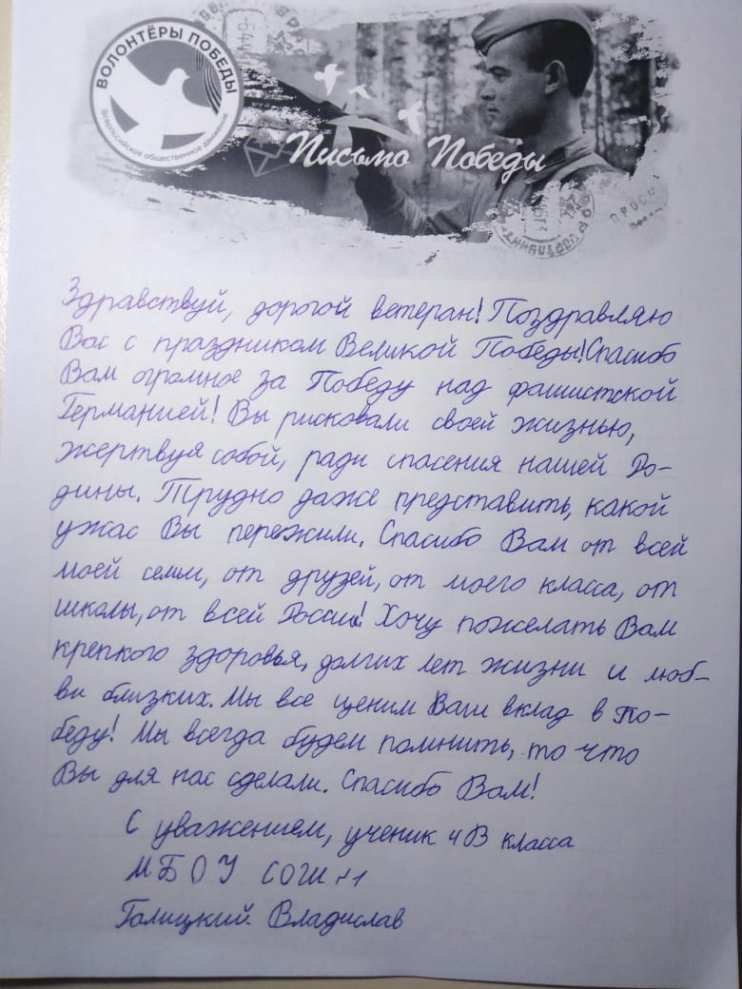 ВОЛОНТЁРЫ ПОБЕДЫ
Всероссийское общественное движение
Письмо Победы
Здравствуй, дорогой ветеран! Поздравляю
Вас с праздником Великой Победы! Спасибо
Вам огромное за Победу над фашистской
Германией! Вы рисковали своей жизнью,
жертвуя собой, ради спасения нашей Ро-
дины. Трудно даже представить, какой
ужас Вы пережили. Спасибо Вам от всей
моей семьи, от друзей, от моего класса, от
школы, от всей России! Хочу пожелать Вам
крепкого здоровья, долгих лет жизни и люб-
ви близких. Мы все ценим Ваш вклад в По-
беду! Мы всегда будем помнить, то что
Вы для нас сделали. Спасибо Вам!
С уважением, ученик 4В класса
МБОУ СОШ №1
Голицкий Владислав